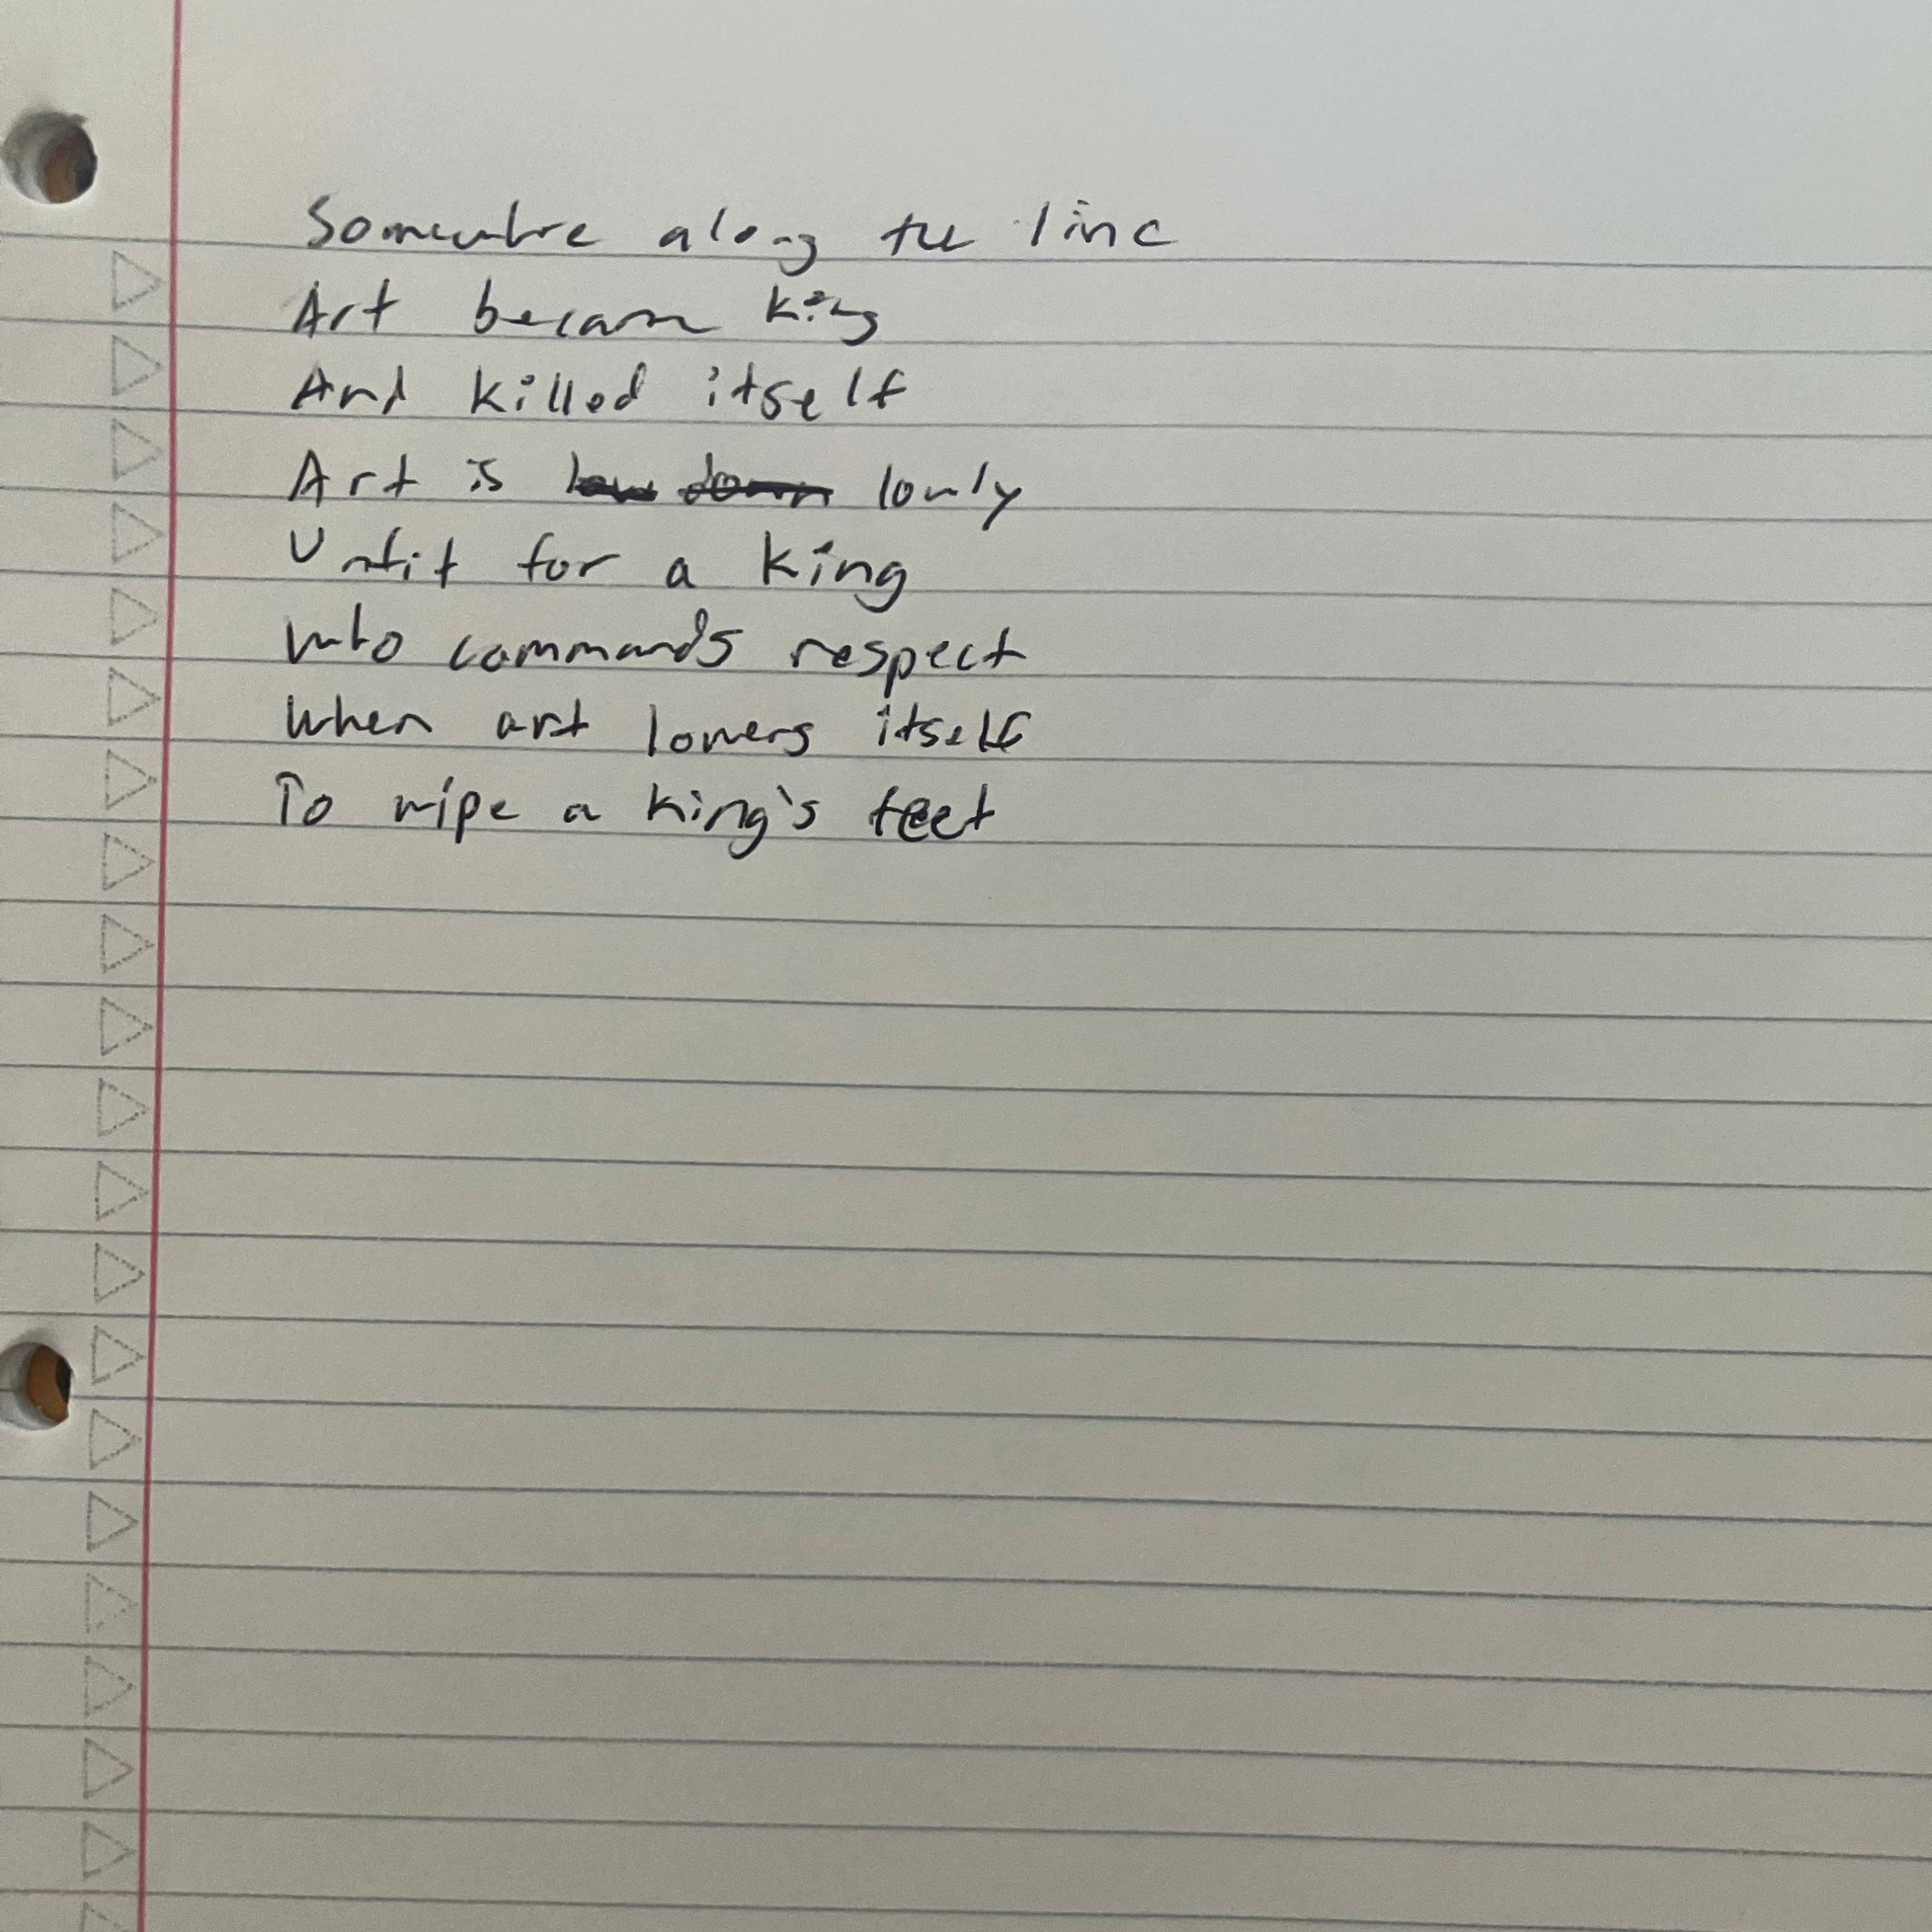 Somewhere along the line
Art became king
And killed itself
Art is low down lowly
Unfit for a king
Who commands respect
When art lowers itself
To wipe a king's feet